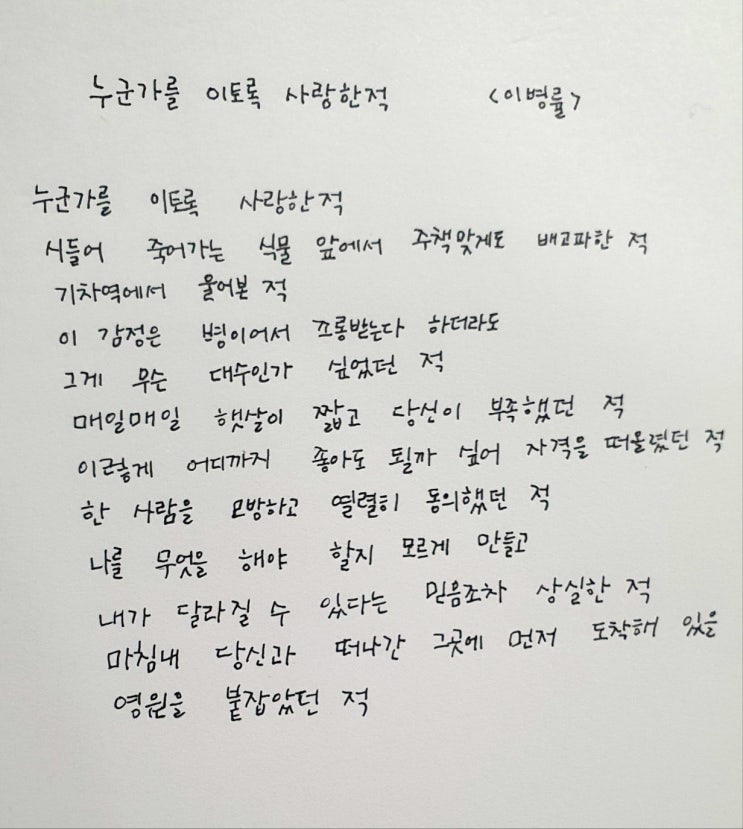 누군가를 이토록 사랑한적 <이병률>
누군가를 이토록 사랑한적
시들어 죽어가는 식물 앞에서 주책맞게도 배고파한 적
기차역에서 울어본 적
이 감정은 병이어서 조롱받는다 하더라도
그게 무슨 대수인가 싶었던 적
매일매일 햇살이 짧고 당신이 부족했던 적
이렇게 어디까지 좋아도 될까 싶어 자격을 떠올렸던 적
한 사람을 모방하고 열렬히 동의했던 적
나를 무엇을 해야 할지 모르게 만들고
내가 달라질 수 있다는 믿음조차 상실한 적
마침내 당신과 떠나간 그곳에 먼저 도착해 있을
영원을 붙잡았던 적